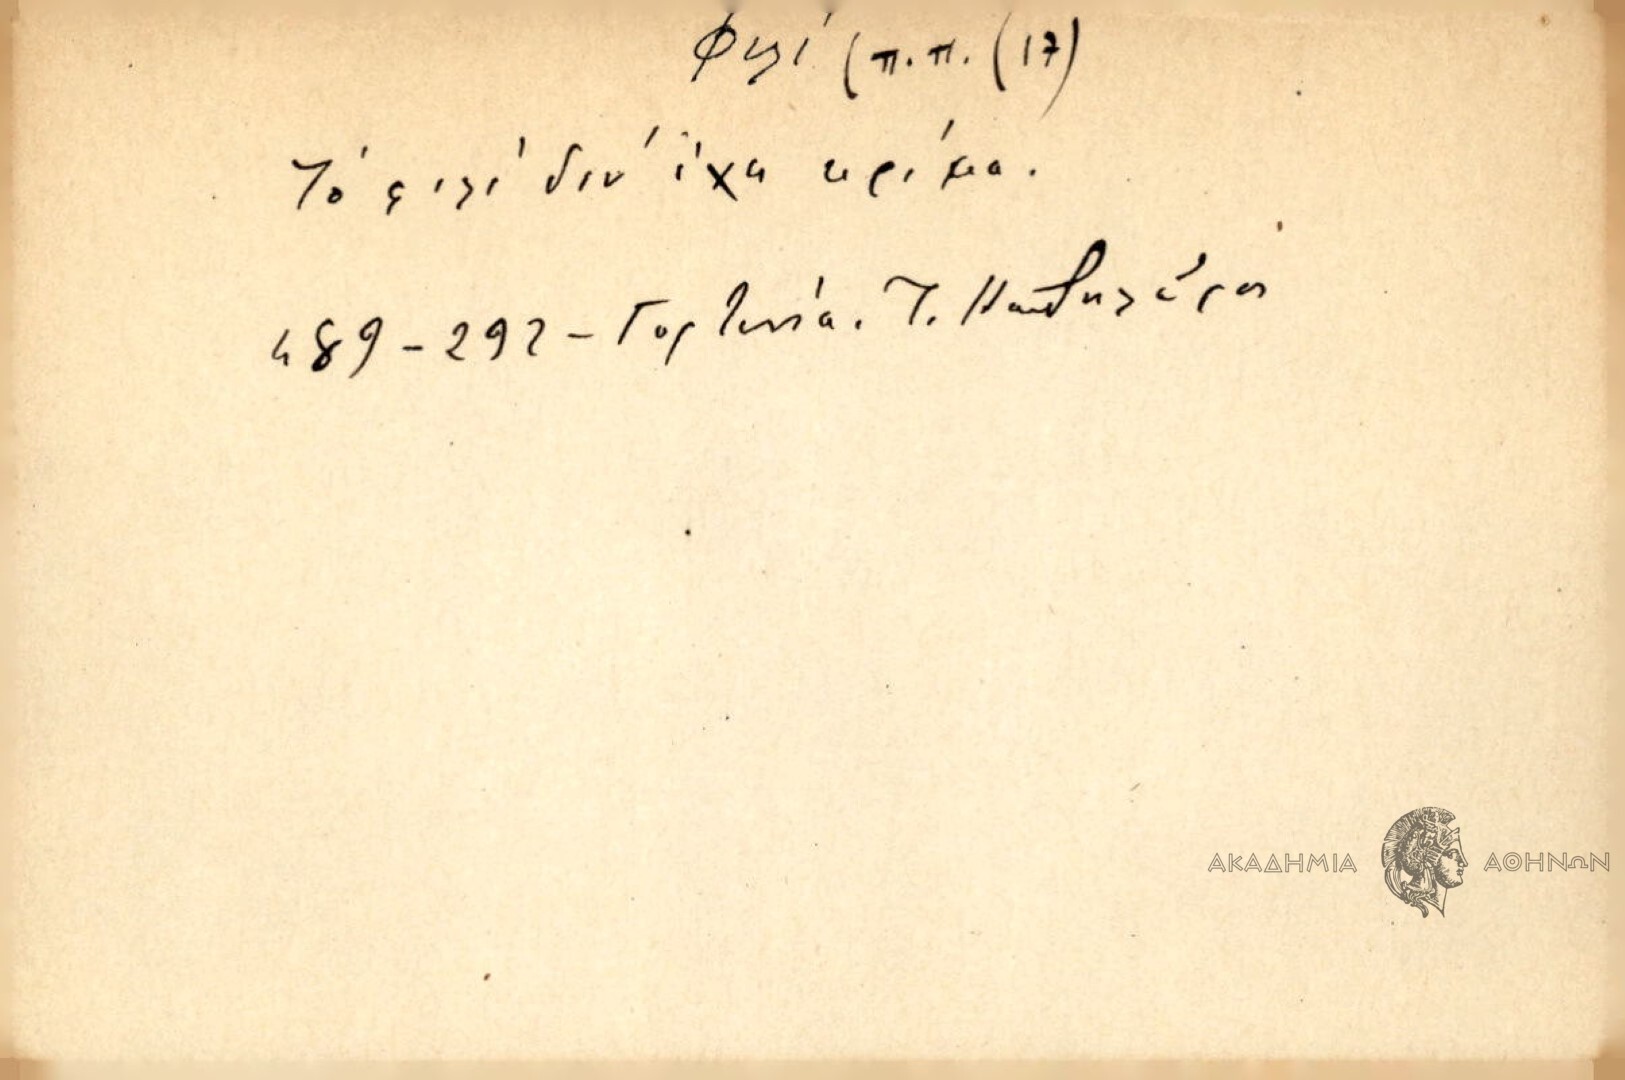 Φιλί (π.π. (17)
Τό φιλί δέν ἔχει κρίμα.
489-292- Γορτυνία. Τ. Κανδηλάρος
ΑΚΑΔΗΜΙΑ ΑΘΗΝΩΝ